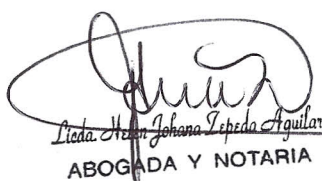 Licda. Helen Johana Zepeda Aguilar
ABOGADA Y NOTARIA